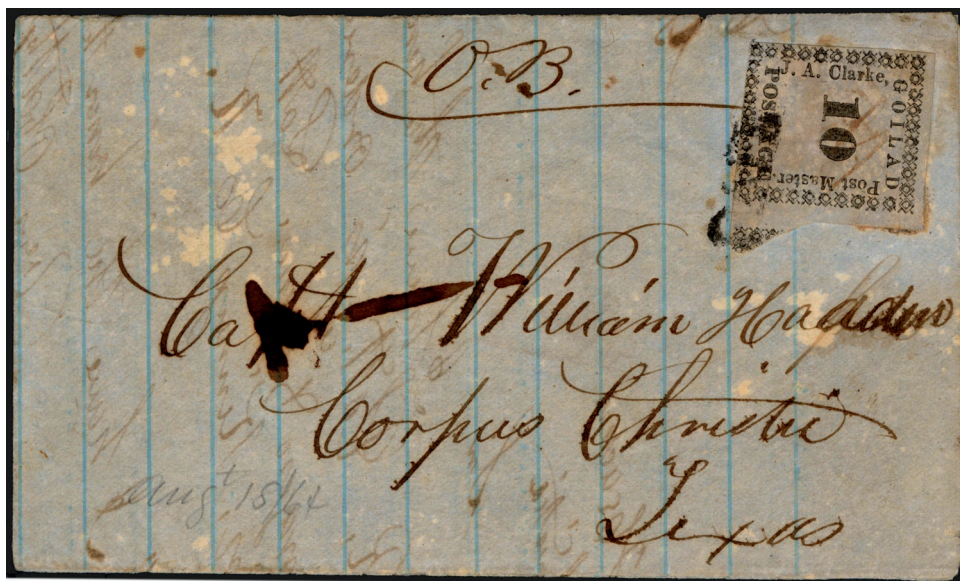 O.B.
J. A. Clarke,
GOILAD
10
POSTAGE
Post Master.
Capt William Hadden
Corpus Christi
Texas
Aug t 15/64